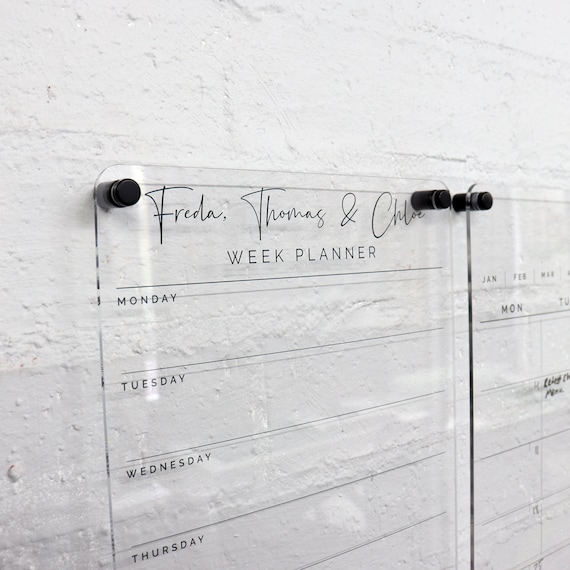 Freda, Thomas & Chloe
WEEK PLANNER
MONDAY
TUESDAY
WEDNESDAY
THURSDAY
JAN FEB MAR
MON TU